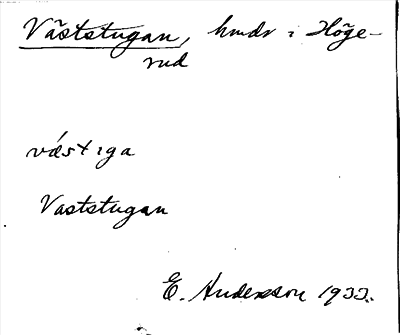 Väststugan, hmdr i Höge-
rud
väst iga
Vaststugan
E. Andersson 1933.